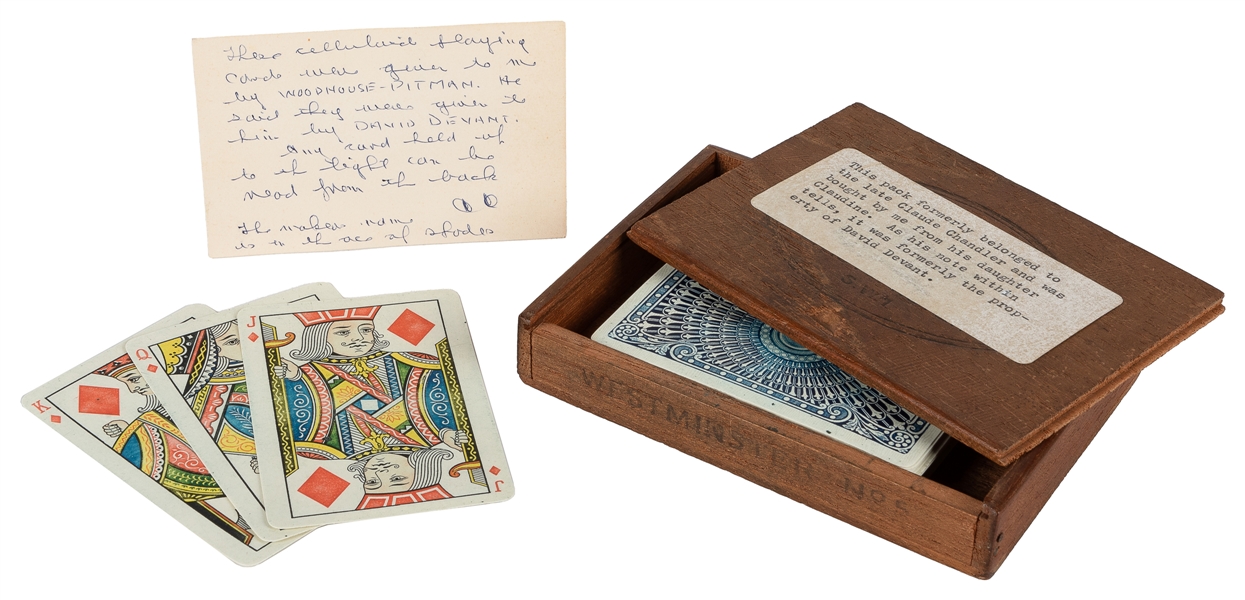 These celluloid playing
cards were given to me
by WOODHOUSE-PITMAN. He
said they were given to
him by DAVID DEVANT.
Any card held up
to the light can be
read from the back
The makers name
is on the ace of spades
This pack formerly belonged to
the late Claude Chandler and was
bought by me from his daughter
Claudine. As his note within
tells, it was formerly the prop-
erty of David Devant.
WESTMINSTER No 5
K
Q
J
J